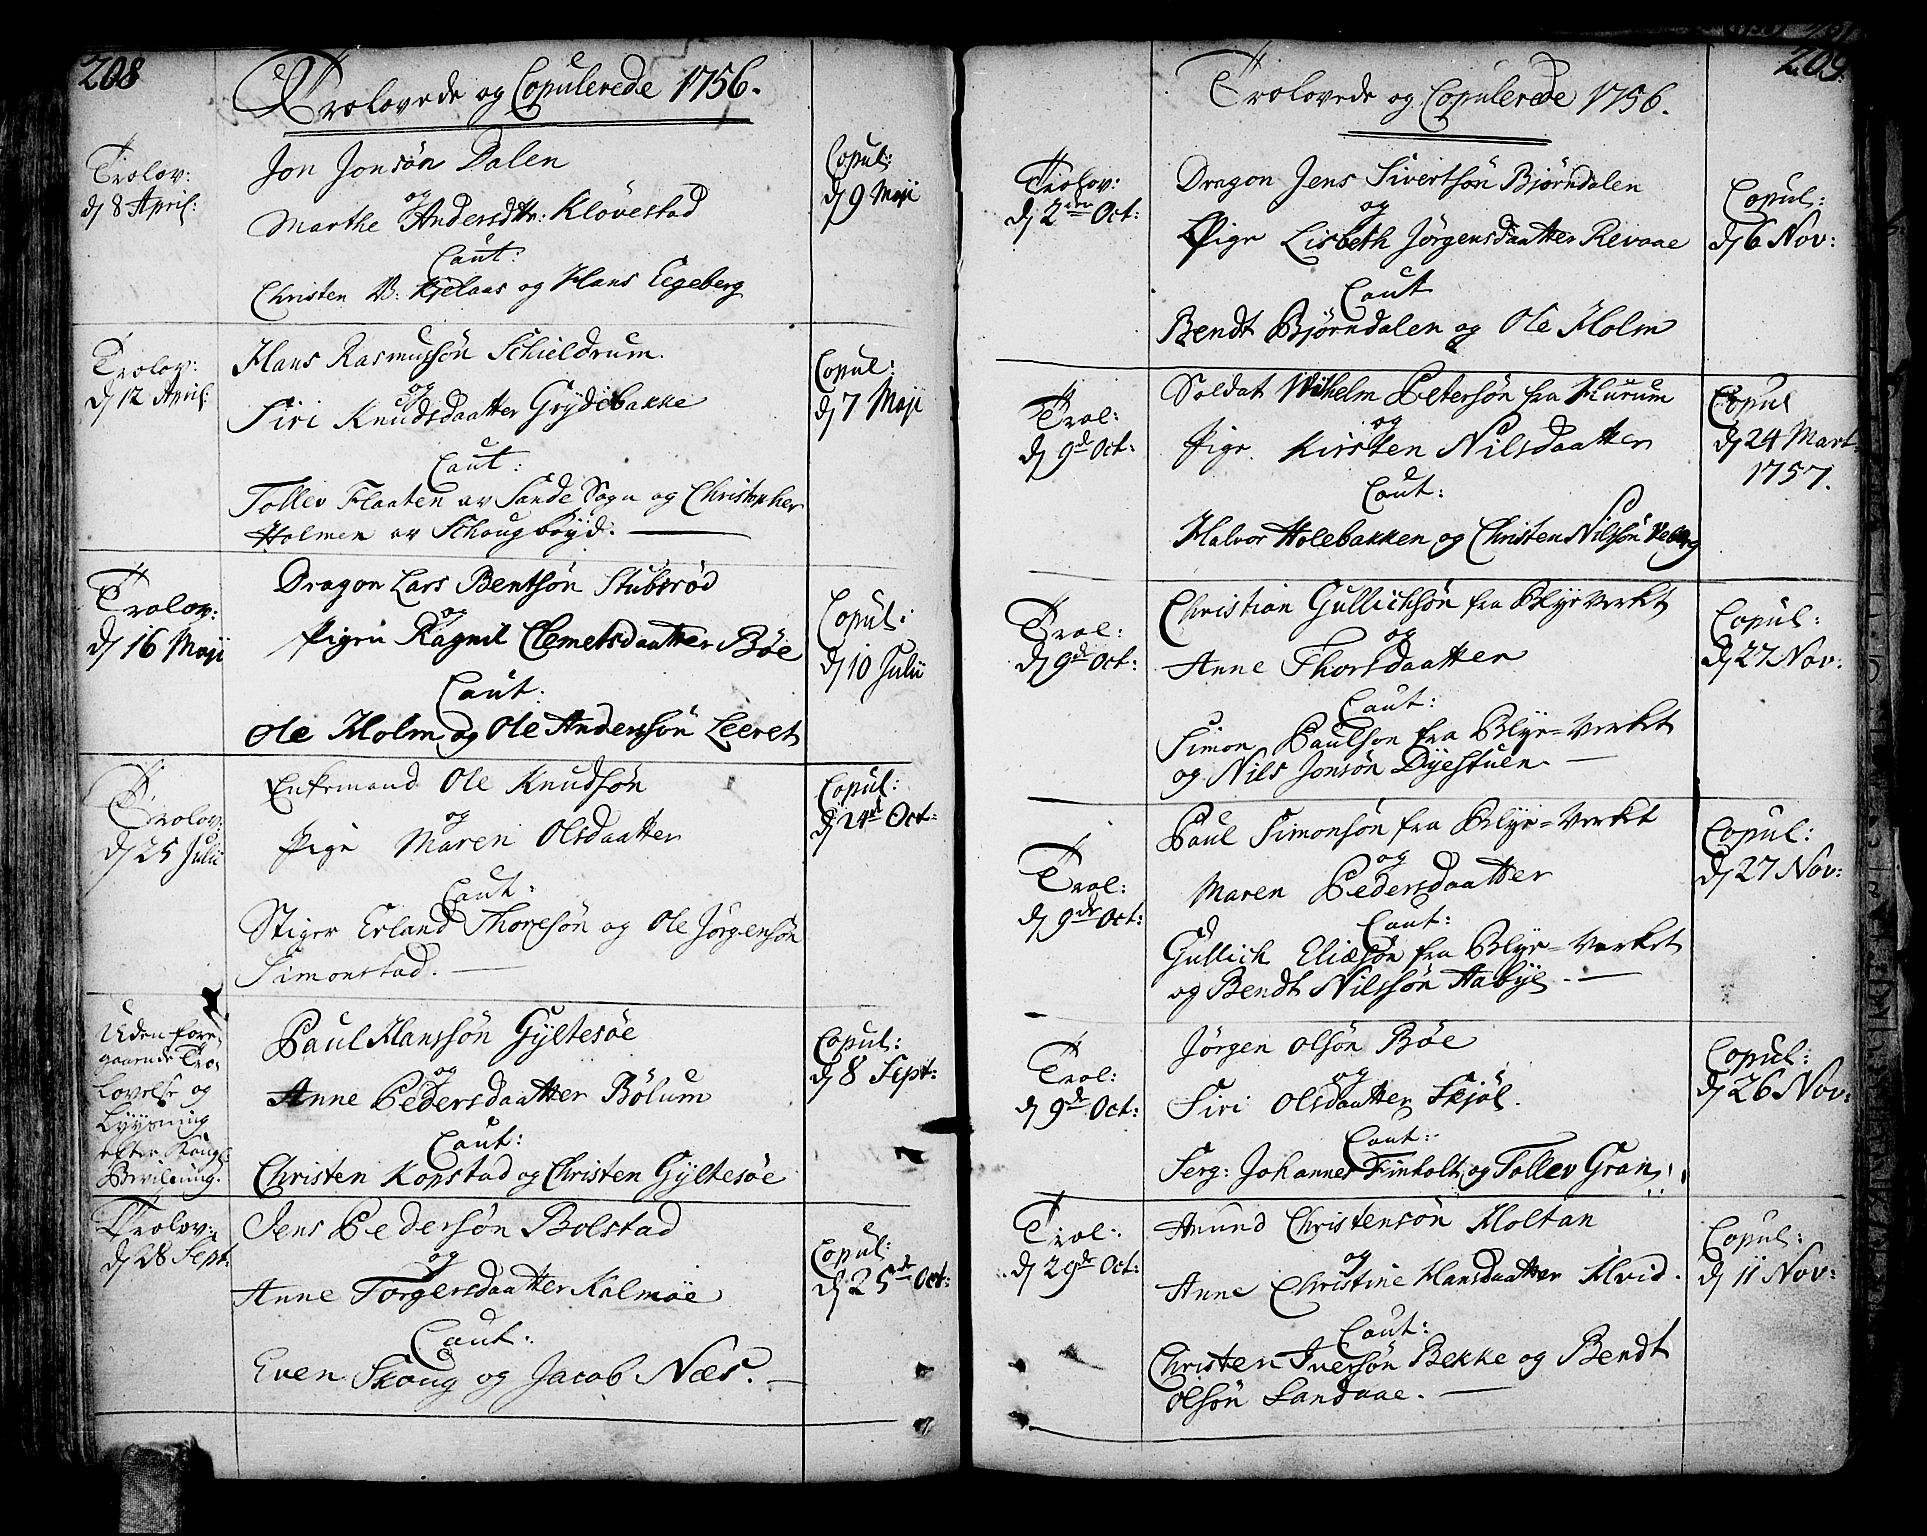 208
Trolovede og Copulerede 1756.
Trolov:
d 8 April:
Jon Jonsøn Dalen
og
Marthe Andersdtr: Kløvestad
Caut:
Christen B: Kjelaas og Hans Eegeberg
Copul:
d 9 Maji
Trolov:
d 12 April:
Hans Rasmussøn Schieldrum.
og
Siri Knudsdaatter Grydebakke
Caut:
Tollev Flaaten av Sande Sogn og Christopher
Holmen av Schougbøyd.
Copul:
d 7 Maji
Trolov:
d 16 Maji
Dragon Lars Bentsøn Stubsrød
og
Pigen Ragnil Clemetsdaatter Bøe
Caut:
Ole Holm og Ole Anderssøn Leeret
Copul:
d 10 Julii
Trolov:
d 25 Julii
Enkemand Ole Knudsøn
og
Pige Maren Olsdaatter
Caut:
Stiger Erland Thoresøn og Ole Jørgensøn
Simonstad.
Copul:
d 24d Oct:
Uden fore-
gaaende Tro-
lovelse og
Lyysning
efter Kongl:
Bevilgning.
Paul Hanssøn Gyltesøe
og
Anne Pedersdaatter Bølum
Caut:
Christen Kopstad og Christen Gyltesøe
Copul:
d 8 Sept:
Trolov:
d 28 Sept:
Jens Pedersøn Bolstad
og
Anne Torgersdaatter Kalmøe
Caut:
Even Skoug og Jacob Næs.
Copul:
d 25d Oct:
209
Trolovede og Copulerede 1756.
Trolov:
d 2den Oct:
Dragon Jens Sivertsøn Bjørndalen
og
Pige Lisbeth Jørgensdaatter Revaae
Caut
Bendt Bjørndalen og Ole Holm
Copul:
d 6 Nov:
Trol:
d 9d Oct:
Soldat Wilhelm Petersøn fra Hurum
og
Pige Kirsten Nilsdaatter
Caut:
Halvor Holebakken og Christen Nilsøn Neberg
Copul
d 24 Mart
1757.
Trol:
d 9d Oct:
Christian Gullichsøn fra Blye-Verket
og
Anne Thorsdaatter
Caut:
Simon Paulsøn fra Blye-Verket
og Nils Jonsøn Dyestuen.
Copul:
d 27 Nov:
Trol:
d 9de Oct:
Paul Simonsøn fra Blye-Verket
og
Maren Pedersdaatter
Caut:
Gullich Eliæsøn fra Blye-Verket
og Bendt Nilssøn Aabye.
Copul:
d 27 Nov:
Trol:
d 9d Oct:
Jørgen Olsøn Bøe
og
Siri Olsdaatter Skjøl.
Caut:
Serg: Johannes Finholt og Tollev Gran
Copul:
d 26 Nov:
Trol:
d 29de Oct:
Amund Christensøn Holtan
og
Anne Christine Hansdaatter Hvid.
Caut:
Christen Iversøn Bekke og Bendt
Olsøn Sandaae.
Copul:
d 11 Nov: